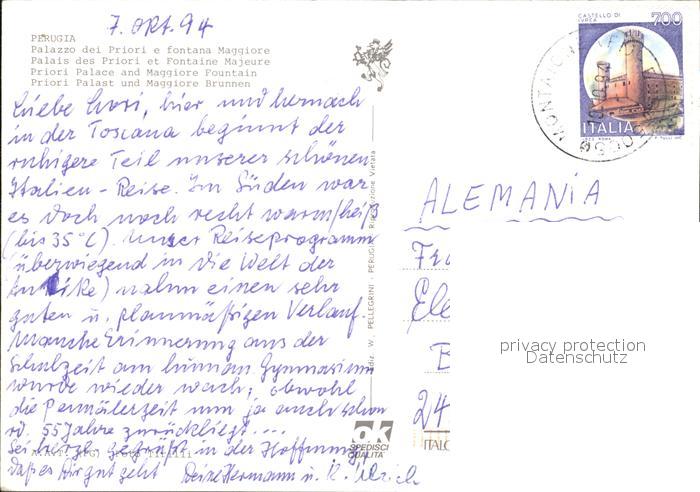 7. Okt. 94
PERUGIA
Palazzo dei Priori e fontana Maggiore
Palais des Priori et Fontaine Majeure
Priori Palace and Maggiore Fountain
Priori Palast und Maggiore Brunnen
Liebe hier und hernach
in der Toscana beginnt der
ruhigere Teil unserer schönen
Italien-Reise. Im Süden war
es doch noch recht warm/heiß
(bis 35°C). Unser Reiseprogramm
(überwiegend in die Welt der
Antike) nahm einen sehr
guten u. planmäßigen Verlauf.
Manche Erinnerung aus der
Schulzeit am human. Gymnasium
wurde wieder wach, obwohl
die Pennälerzeit nun ja auch schon
rd. 55 Jahre zurückliegt....
Sei herzl. gegrüßt in der Hoffnung,
daß es Dir gut geht Deine Hermann u.
ediz. W. PELLEGRINI - PERUGIA - Riproduzione Vietata
CASTELLO DI
IVREA
700
ITALIA
ALEMANIA
Fr
Ele
B
24
privacy protection
Datenschutz
ok
SPEDISCI
QUALITA'
ITALC